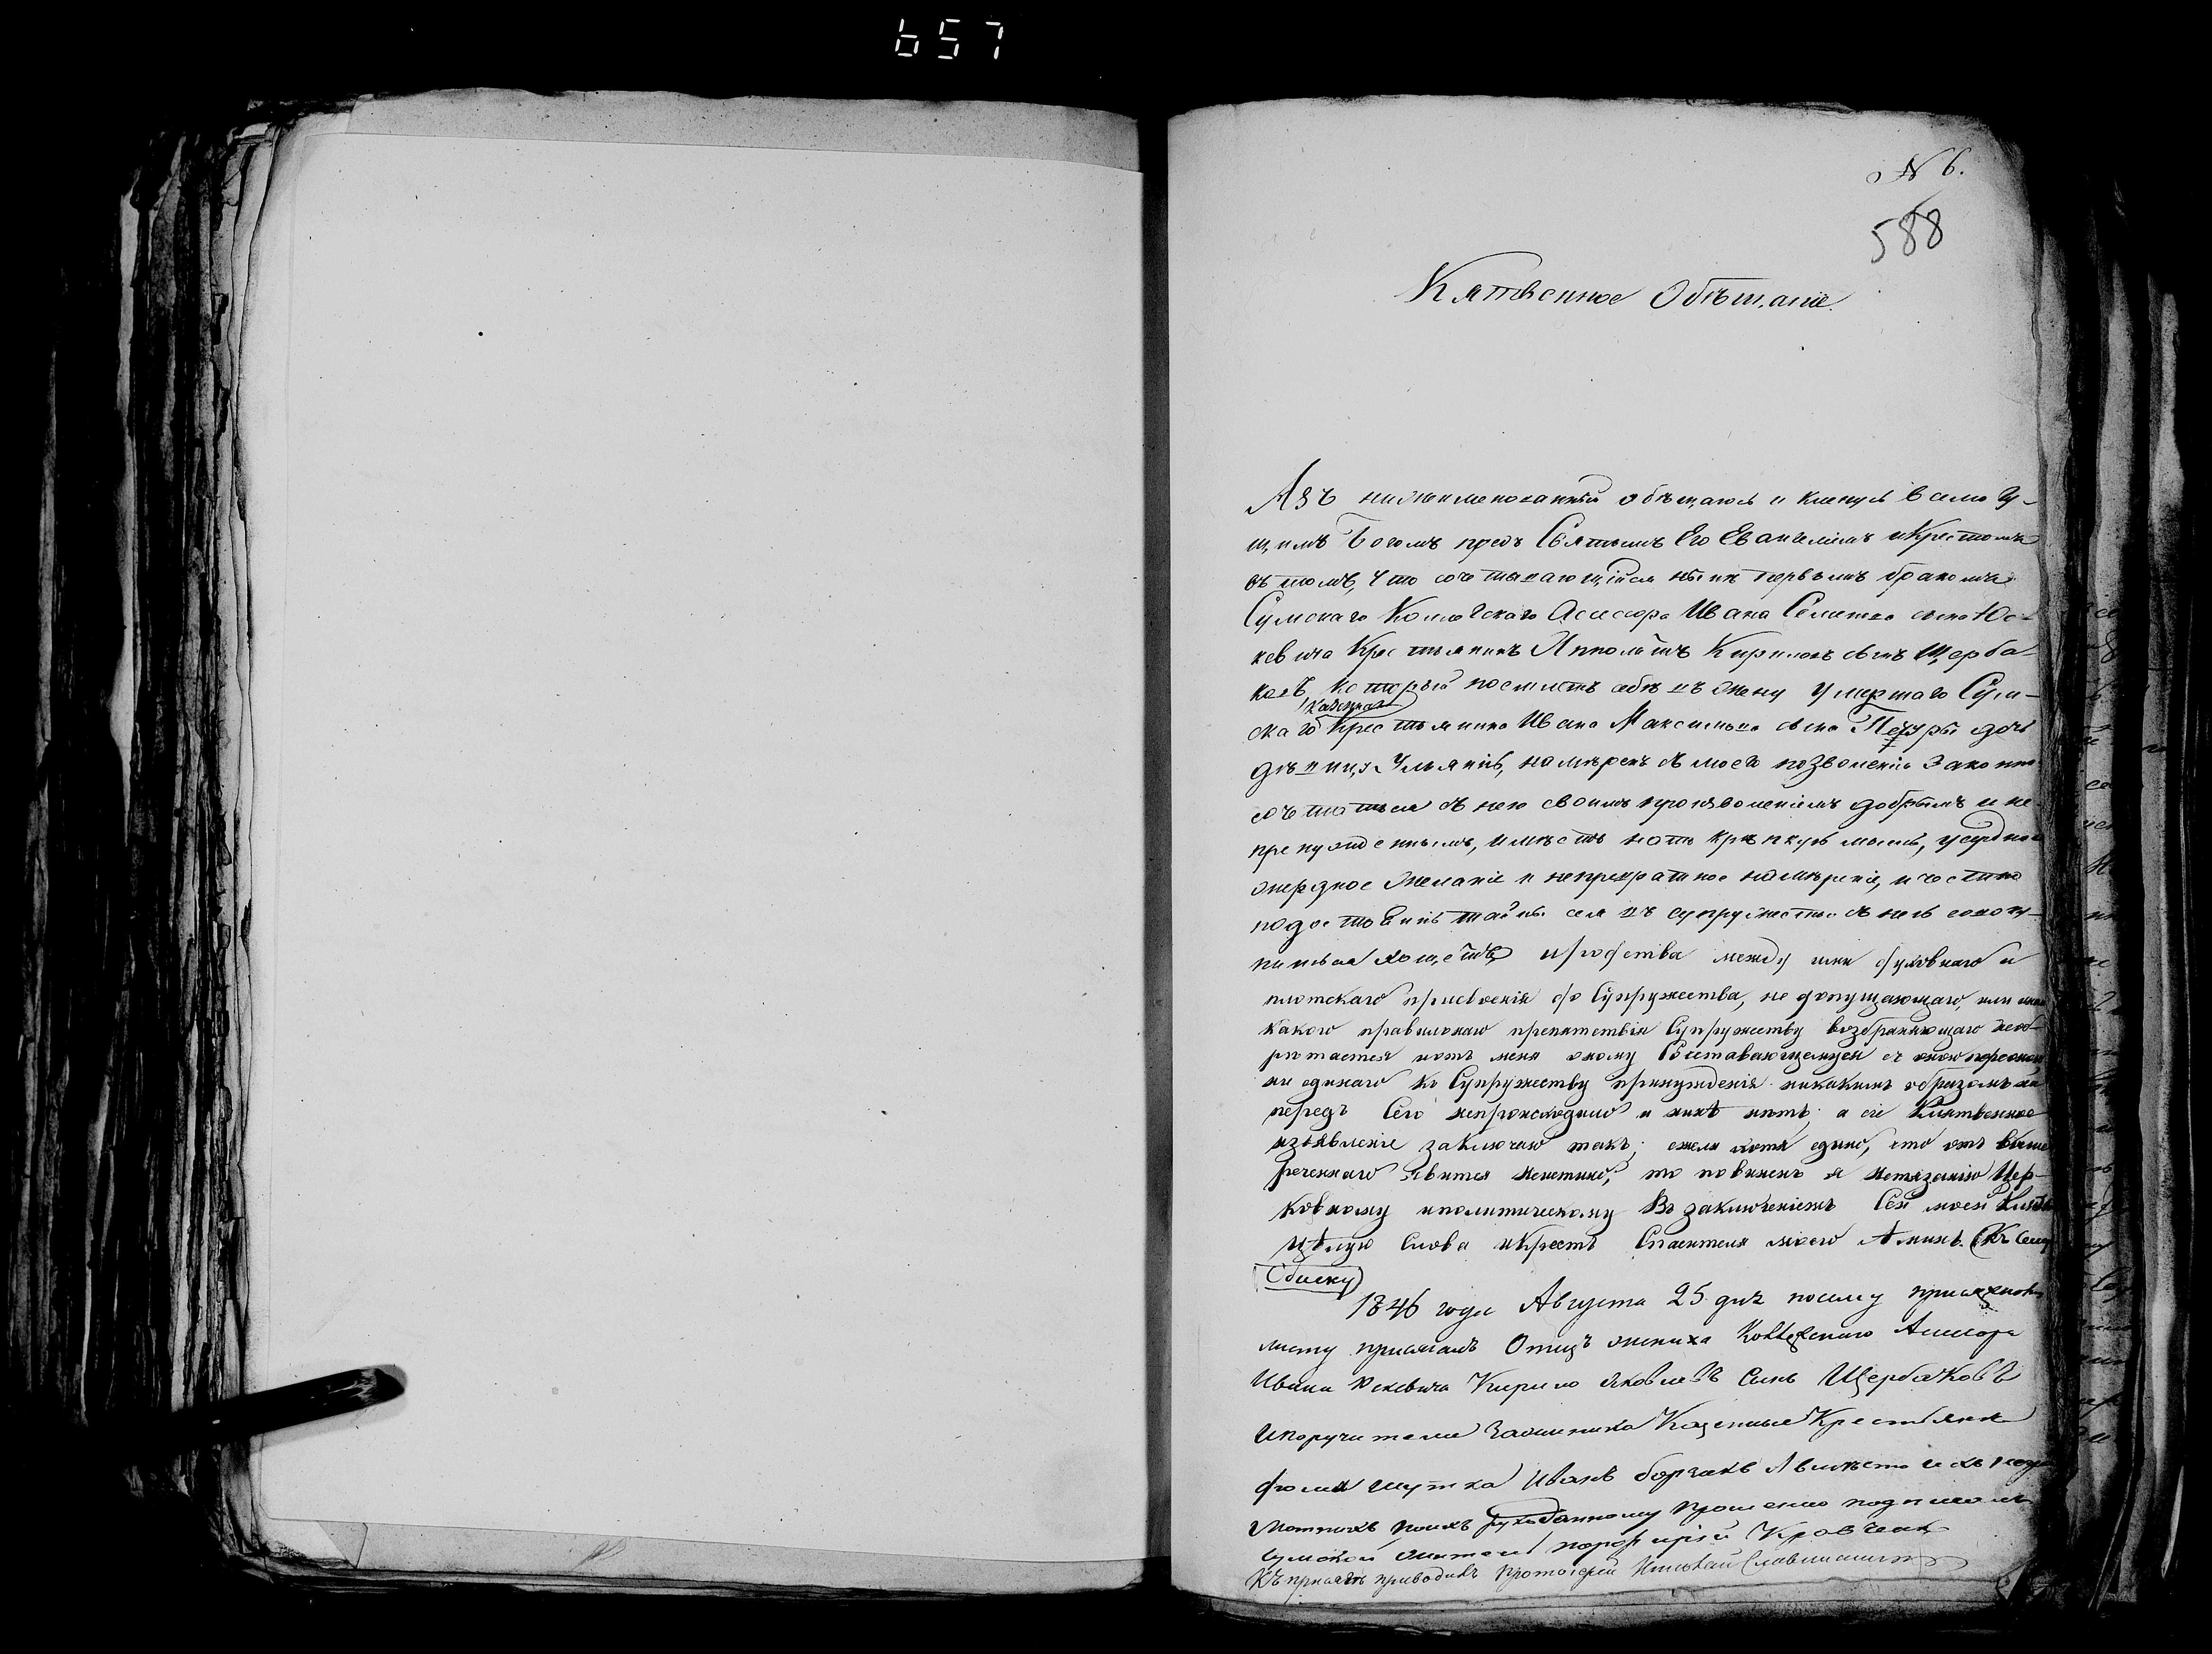 657
N 6.
588
Клятвенное Обѣщаніе.
Азъ нижеименованный обѣщаюсь и кленусь всемогу-
щимъ Богомъ предъ Святымъ Его Евангеліемъ и Крестомъ
въ томъ, что сочетавающійся нынѣ первымъ бракомъ
Сумскаго Колежскаго Асессора Ивана Семенова сына Юс-
кевича Крестьянинъ Ипполитъ Кириловъ сынъ Щерба-
ковъ, который поемлетъ себѣ въ жену умершаго Сум-
скаго казеннаго Крестьянина Ивана Максимова сына дочь
дѣвицу Ульяну, намѣренъ съ моего позволенія законно
сочетаться съ нею своимъ произволеніемъ добрымъ и не-
принужденнымъ, имѣетъ на то крѣпкую мысль, усердное
желаніе и непревратное намѣреніе, и честно
по достоинству тайны сея въ супружество съ нею совоку-
питься хощетъ, и родства между ими духовнаго и
плотскаго присвоенія до Супружества, не допущающаго, или инаго
какого правильнаго препятствія Супружеству возбраняющаго необ-
рѣтается и отъ меня оному Сочетавающемуся съ оною персоною
ни единаго къ Супружеству принужденія никакимъ образомъ на
передъ Сего непроисходило и нынѣ нѣтъ; а сіе Клятвенное
изъявленіе заключаю такъ; ежели хотя едино, что отъ выше
реченнаго явится неистинно, то повиненъ я истязанію Цер-
ковному и политическому Въ заключеніемъ Сей моей Клятвы
цѣлую Слова и Крестъ Спасителя моего Аминь. (Къ Сему
Обыску)
1846 года Августа 25 дня по сему присяжному
листу присягалъ Отецъ жениха Коллежскаго Асессора
Ивана Юскевича Кирило Яковлевъ Сынъ Щербаковъ
И поручители за жениха Казенные Крестьяне
Фома Шутка Иванъ Борзакъ А вмѣсто ихъ негра
мотныхъ по ихъ рукоданному прошенію подписалъ
сумской житель порфирій Кравченко
Къ присягѣ приводилъ Протоіерей Николай